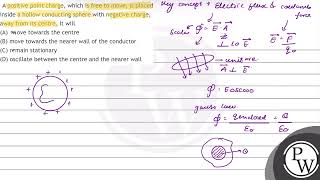 A positive point charge, which is free to move, is placed
inside a hollow conducting sphere with negative charge,
away from its centre. It will
(A) move towards the centre
(B) move towards the nearer wall of the conductor
(C) remain stationary
(D) oscillate between the centre and the nearer wall
Key concept → Electric flux & coulombs
force
scalar
ϕ = E⃗ · A⃗
E⃗ = F⃗
q₀
uniform
A⃗ ⊥ E⃗
ϕ = EA cos θ
gauss law
ϕ = qenclosed = Q
E₀ E₀
Q
P
W